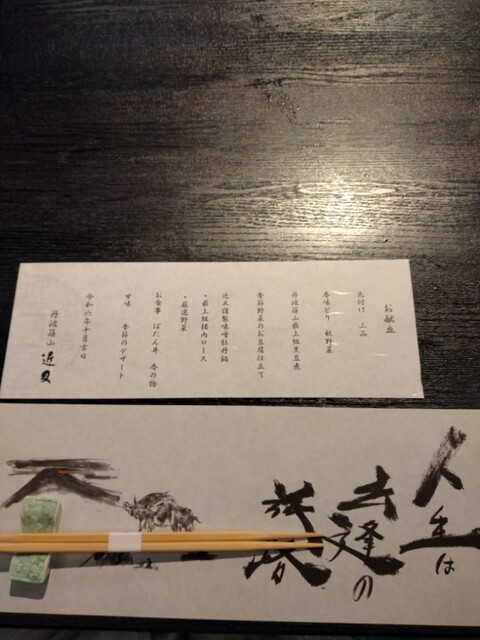 お献立
先付け 三品
香味どり 秋野菜
丹波篠山最上級黒豆煮
季節野菜のお豆腐仕立て
近又謹製味噌牡丹鍋
・最上級猪肉ロース
・厳選野菜
お食事 ぼたん丼 香の物
甘味 季節のデザート
令和六年十月吉日
丹波篠山 近又
人生は
出逢の
旅